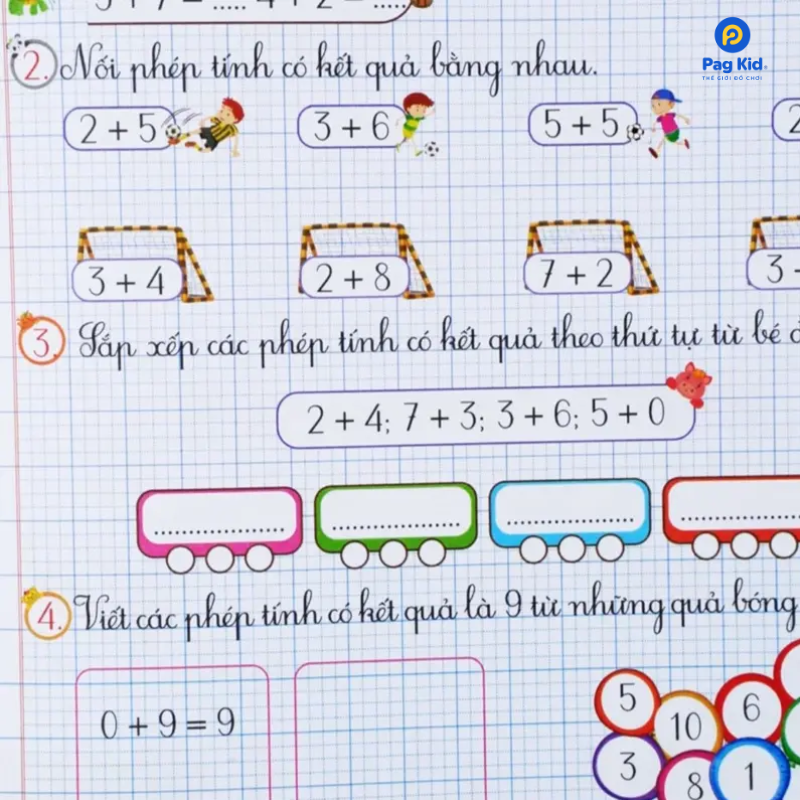 Pag Kid
THẾ GIỚI ĐỒ CHƠI
2. Nối phép tính có kết quả bằng nhau.
2 + 5 3 + 6 5 + 5 2
3 + 4 2 + 8 7 + 2 3
3. Sắp xếp các phép tính có kết quả theo thứ tự từ bé
2 + 4; 7 + 3; 3 + 6; 5 + 0
4. Viết các phép tính có kết quả là 9 từ những quả bóng
0 + 9 = 9
5 10 6
3 8 1